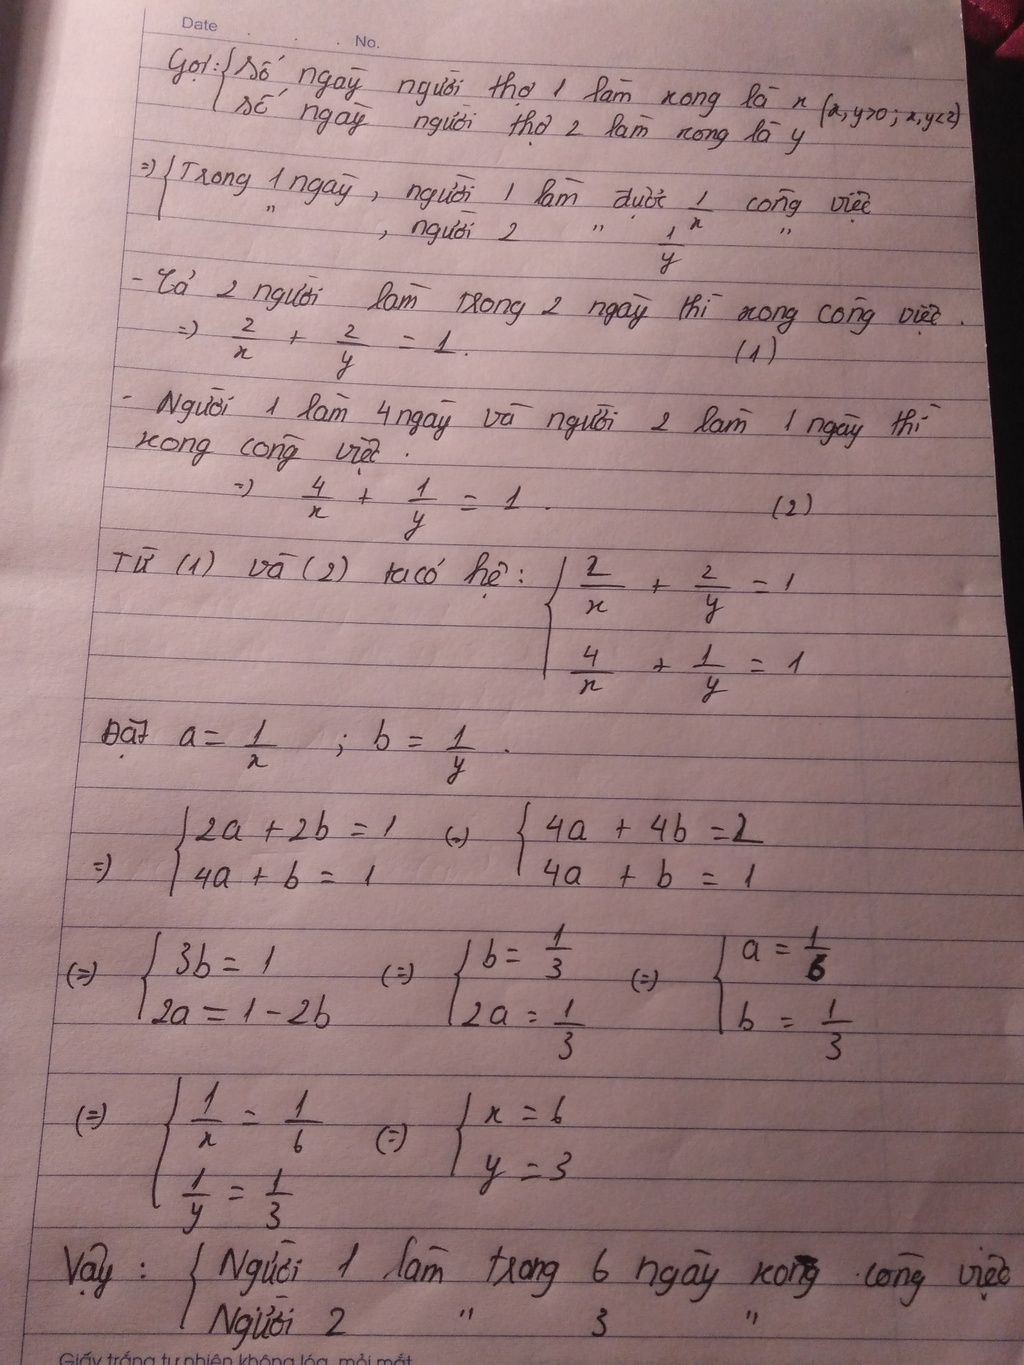 Date . . . No.
Gọi: { Số ngày người thợ 1 làm xong là x (x,y>0; x,y<2)
số ngày người thợ 2 làm xong là y
=> { Trong 1 ngày, người 1 làm được 1/x công việc
" , người 2 " 1/y "
- Cả 2 người làm trong 2 ngày thì xong công việc.
=> 2/x + 2/y = 1. (1)
- Người 1 làm 4 ngày và người 2 làm 1 ngày thì
xong công việc.
=> 4/x + 1/y = 1. (2)
Từ (1) và (2) ta có hệ: { 2/x + 2/y = 1
4/x + 1/y = 1
Đặt a = 1/x ; b = 1/y.
=> { 2a + 2b = 1 (=) { 4a + 4b = 2
4a + b = 1 4a + b = 1
(=) { 3b = 1 (=) { b = 1/3 (=) { a = 1/6
2a = 1 - 2b 2a = 1/3 b = 1/3
(=) { 1/x = 1/6 (=) { x = 6
1/y = 1/3 y = 3
Vậy: { Người 1 làm trong 6 ngày xong công việc
Người 2 " 3 "
Giấy trắng tự nhiên không lóa, mỏi mắt